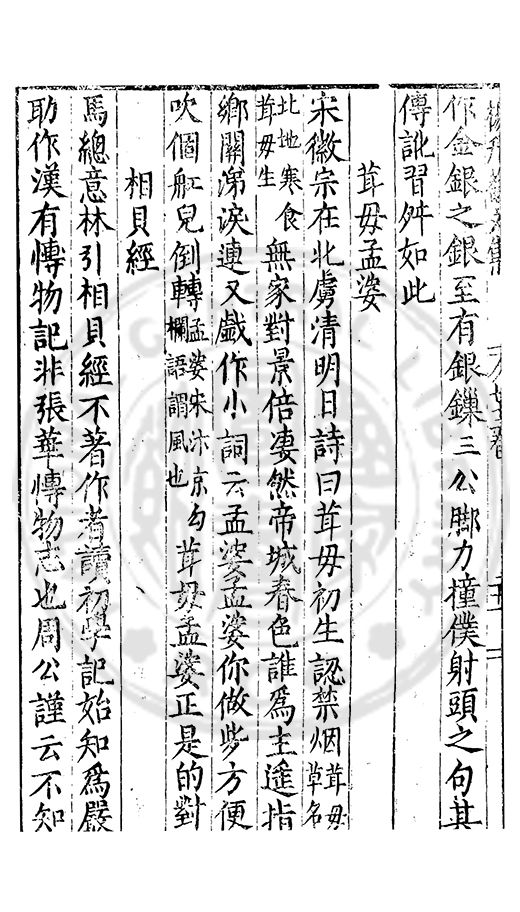 作金銀之銀至有銀鏁三公脚力撞僕射頭之句其
傳訛習舛如此
茸毋孟婆
宋徽宗在北虜清明日詩曰茸毋初生認禁烟茸毋草名
北地寒食茸毋生無家對景倍凄然帝城春色誰爲主遥指
鄉關涕淚連又戲作小詞云孟婆孟婆你做些方便
吹個舡兒倒轉孟婆宋汴京勾欄語謂風也茸毋孟婆正是的對
相貝經
馬總意林引相貝經不著作者讀初學記始知爲嚴
助作漢有慱物記非張華慱物志也周公謹云不知